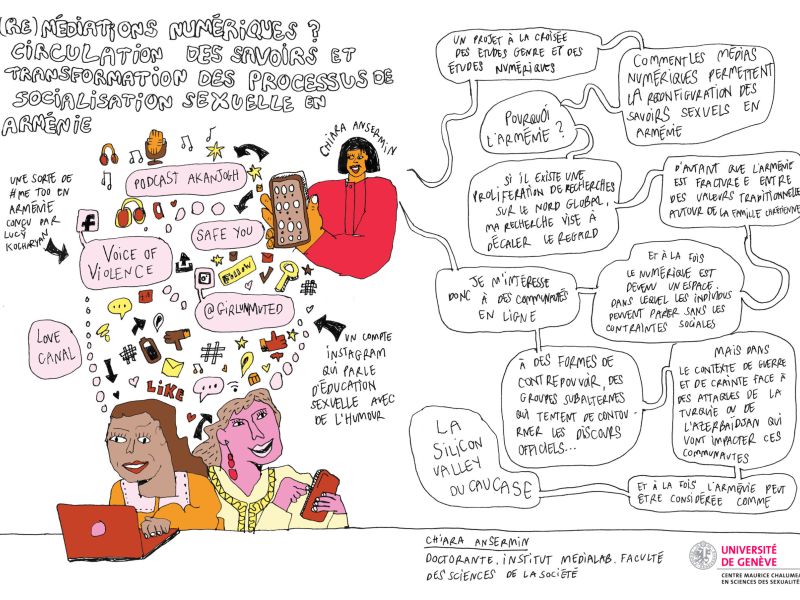 (RE)MÉDIATIONS NUMÉRIQUES ?
CIRCULATION DES SAVOIRS ET
TRANSFORMATION DES PROCESSUS DE
SOCIALISATION SEXUELLE EN
ARMÉNIE
CHIARA ANSERMIN
UNE SORTE DE
#ME TOO EN
ARMÉNIE
CONÇU PAR
LUCY
KOCHARYAN
PODCAST AKANJOGH
SAFE YOU
VOICE OF
VIOLENCE
FOLLOW
@GIRLUNMUTED
LOVE
CANAL
LIKE
UN COMPTE
INSTAGRAM
QUI PARLE
D'ÉDUCATION
SEXUELLE AVEC
DE L'HUMOUR
UN PROJET À LA CROISÉE
DES ETUDES GENRE ET DES
ÉTUDES NUMÉRIQUES
COMMENT LES MÉDIAS
NUMÉRIQUES PERMETTENT
LA RECONFIGURATION DES
SAVOIRS SEXUELS EN
ARMÉNIE
POURQUOI
L'ARMÉNIE ?
SI IL EXISTE UNE
PROLIFERATION DE RECHERCHES
SUR LE NORD GLOBAL,
MA RECHERCHE VISE À
DÉCALER LE REGARD
D'AUTANT QUE L'ARMÉNIE
EST FRACTURÉE ENTRE
DES VALEURS TRADITIONNELLES
AUTOUR DE LA FAMILLE CHRÉTIENNE
ET À LA FOIS
LE NUMÉRIQUE EST
DEVENU UN ESPACE
DANS LEQUEL LES INDIVIDUS
PEUVENT PARLER SANS LES
CONTRAINTES SOCIALES
JE M'INTERESSE
DONC À DES COMMUNAUTÉS
EN LIGNE
À DES FORMES DE
CONTREPOUVOIR, DES
GROUPES SUBALTERNES
QUI TENTENT DE CONTOU-
RNER LES DISCOURS
OFFICIELS...
MAIS DANS
LE CONTEXTE DE GUERRE
ET DE CRAINTE FACE À
DES ATTAQUES DE LA
TURQUIE OU DE
L'AZERBAÏDJAN QUI
VONT IMPACTER CES
COMMUNAUTÉS
ET À LA FOIS L'ARMÉNIE PEUT
ÊTRE CONSIDÉRÉE COMME
LA
SILICON
VALLEY
DU CAUCASE
CHIARA ANSERMIN
DOCTORANTE, INSTITUT MEDIALAB, FACULTÉ
DES SCIENCES DE LA SOCIÉTÉ
UNIVERSITÉ
DE GENÈVE
CENTRE MAURICE CHALUMEAU
EN SCIENCES DES SEXUALITÉS